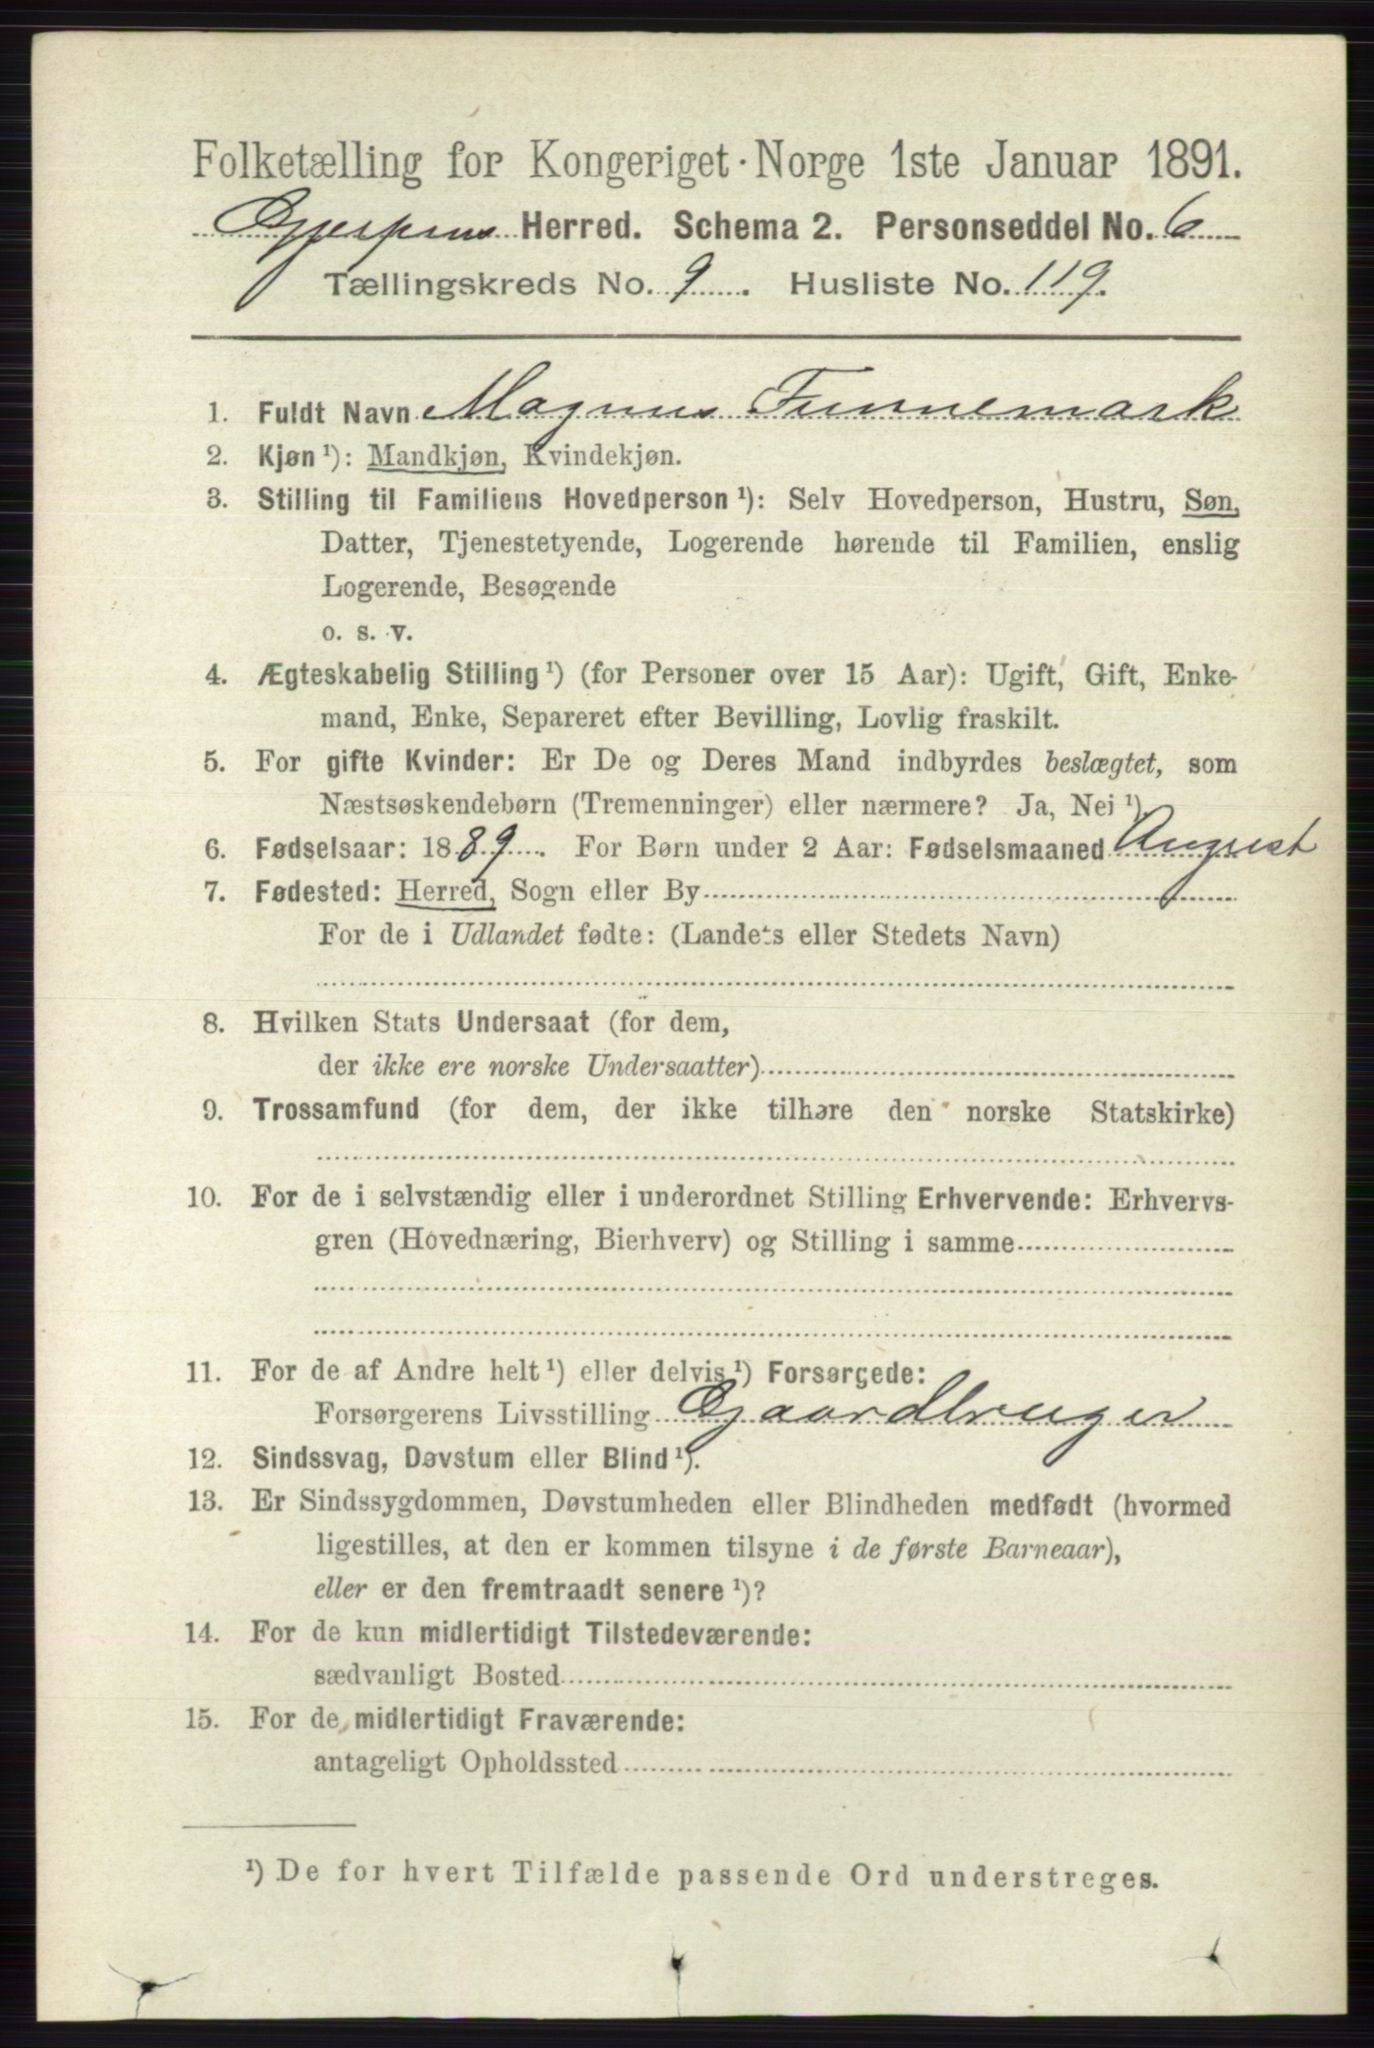 Folketælling for Kongeriget Norge 1ste Januar 1891.
Gjerpens Herred. Schema 2. Personseddel No. 6
Tællingskreds No. 9. Husliste No. 119.
1. Fuldt Navn Magnus Funnemark
2. Kjøn ¹): Mandkjøn, Kvindekjøn.
3. Stilling til Familiens Hovedperson ¹): Selv Hovedperson, Hustru, Søn,
Datter, Tjenestetyende, Logerende hørende til Familien, enslig
Logerende, Besøgende
o. s. v.
4. Ægteskabelig Stilling ¹) (for Personer over 15 Aar): Ugift, Gift, Enke-
mand, Enke, Separeret efter Bevilling, Lovlig fraskilt.
5. For gifte Kvinder: Er De og Deres Mand indbyrdes beslægtet, som
Næstsøskendebørn (Tremenninger) eller nærmere? Ja, Nei ¹)
6. Fødselsaar: 1889. For Børn under 2 Aar: Fødselsmaaned August
7. Fødested: Herred, Sogn eller By
For de i Udlandet fødte: (Landets eller Stedets Navn)
8. Hvilken Stats Undersaat (for dem,
der ikke ere norske Undersaatter)
9. Trossamfund (for dem, der ikke tilhøre den norske Statskirke)
10. For de i selvstændig eller i underordnet Stilling Erhvervende: Erhvervs-
gren (Hovednæring, Bierhverv) og Stilling i samme
11. For de af Andre helt ¹) eller delvis ¹) Forsørgede:
Forsørgerens Livsstilling Gaardbruger
12. Sindssvag, Døvstum eller Blind ¹).
13. Er Sindssygdommen, Døvstumheden eller Blindheden medfødt (hvormed
ligestilles, at den er kommen tilsyne i de første Barneaar),
eller er den fremtraadt senere ¹)?
14. For de kun midlertidigt Tilstedeværende:
sædvanligt Bosted
15. For de midlertidigt Fraværende:
antageligt Opholdssted
¹) De for hvert Tilfælde passende Ord understreges.